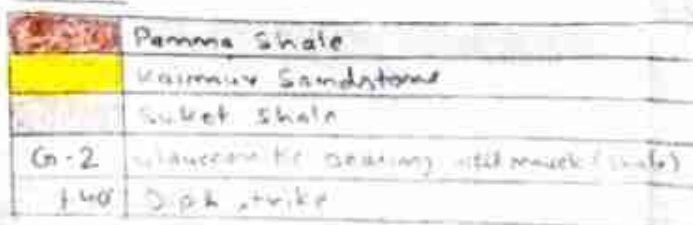 Pamma Shale
Kaimur Sandstone
Suket Shale
G-2 bearing (shale)
40 Dip & strike